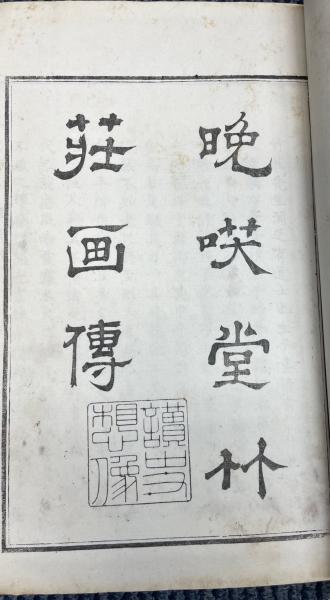 晚唉堂竹
莊画傳
讀史
想像